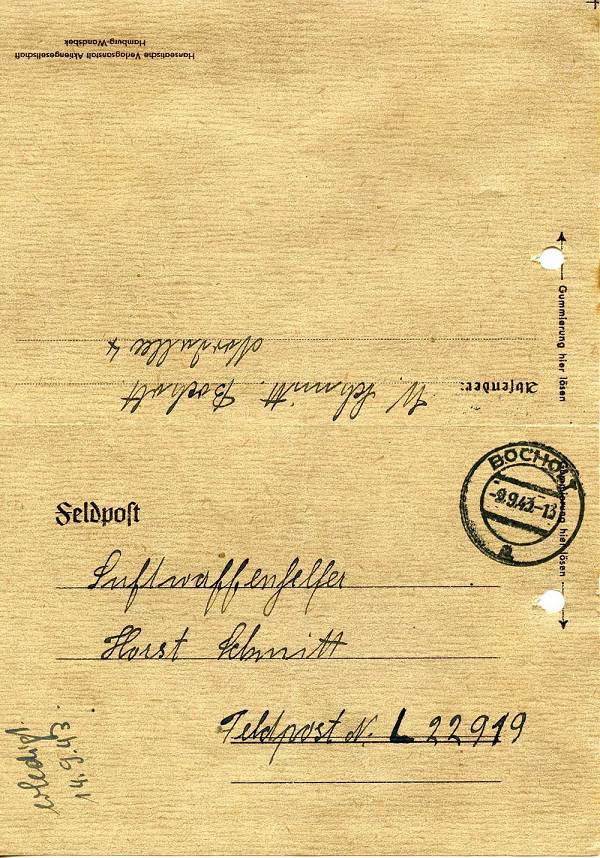 Hanseatische Verlagsanstalt Aktiengesellschaft
Hamburg-Wandsbek
Gummierung hier lösen
Absender: W. Schmitt. Bocholt
Nordallee 4
BOCHOLT
-9.9.43-13
a
hier lösen
Feldpost
Luftwaffenhelfer
Horst Schmitt
Feldpost N. L 22919
erledigt.
14.9.43.